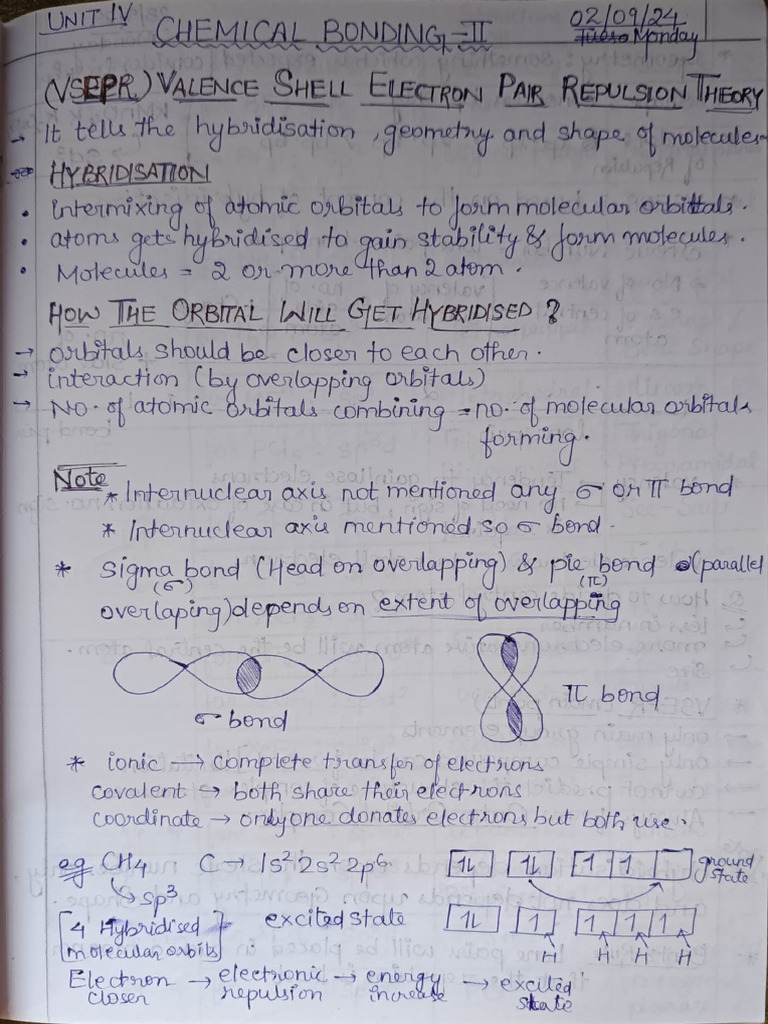 UNIT IV
CHEMICAL BONDING-II
02/09/24
Monday
(VSEPR) VALENCE SHELL ELECTRON PAIR REPULSION THEORY
→ It tells the hybridisation, geometry and shape of molecules
HYBRIDISATION
• intermixing of atomic orbitals to form molecular orbitals.
• atoms gets hybridised to gain stability & form molecules.
• Molecules = 2 or more than 2 atom.
HOW THE ORBITAL WILL GET HYBRIDISED?
→ orbitals should be closer to each other.
→ interaction (by overlapping orbitals)
→ No. of atomic orbitals combining = no. of molecular orbitals
forming.
Note
* Internuclear axis not mentioned any σ or π bond
* Internuclear axis mentioned so σ bond.
* sigma bond (Head on overlapping) & pie bond (parallel
(σ) (π)
overlaping) depends on extent of overlapping
σ bond
π bond
* ionic → complete transfer of electrons
covalent → both share their electrons
coordinate → only one donates electrons but both use.
eg CH4 C → 1s² 2s² 2p⁶ 1L 1L 1 1 ground
state
↳ sp³
[4 Hybridised excited state 1L 1 1 1 1
molecular orbits] H H H H
Electron → electronic → energy → excited
closer repulsion increase state